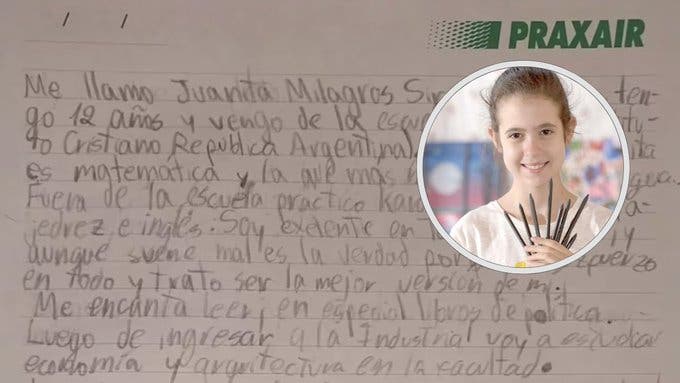 / /
PRAXAIR
Me llamo Juanita Milagros Sir ten-
go 12 años y vengo de la escu tu-
to Cristiano República Argentina
es matemática y la que más
Fuera de la escuela práctico Kara a-
jedrez e inglés. Soy exelente en y
aunque suene mal es la verdad por esfuerzo
en todo y trato ser la mejor versión de mi.
Me encanta leer, en especial libros de política.
Luego de ingresar a la Industrial voy a estudiar
economía y arquitectura en la facultad.